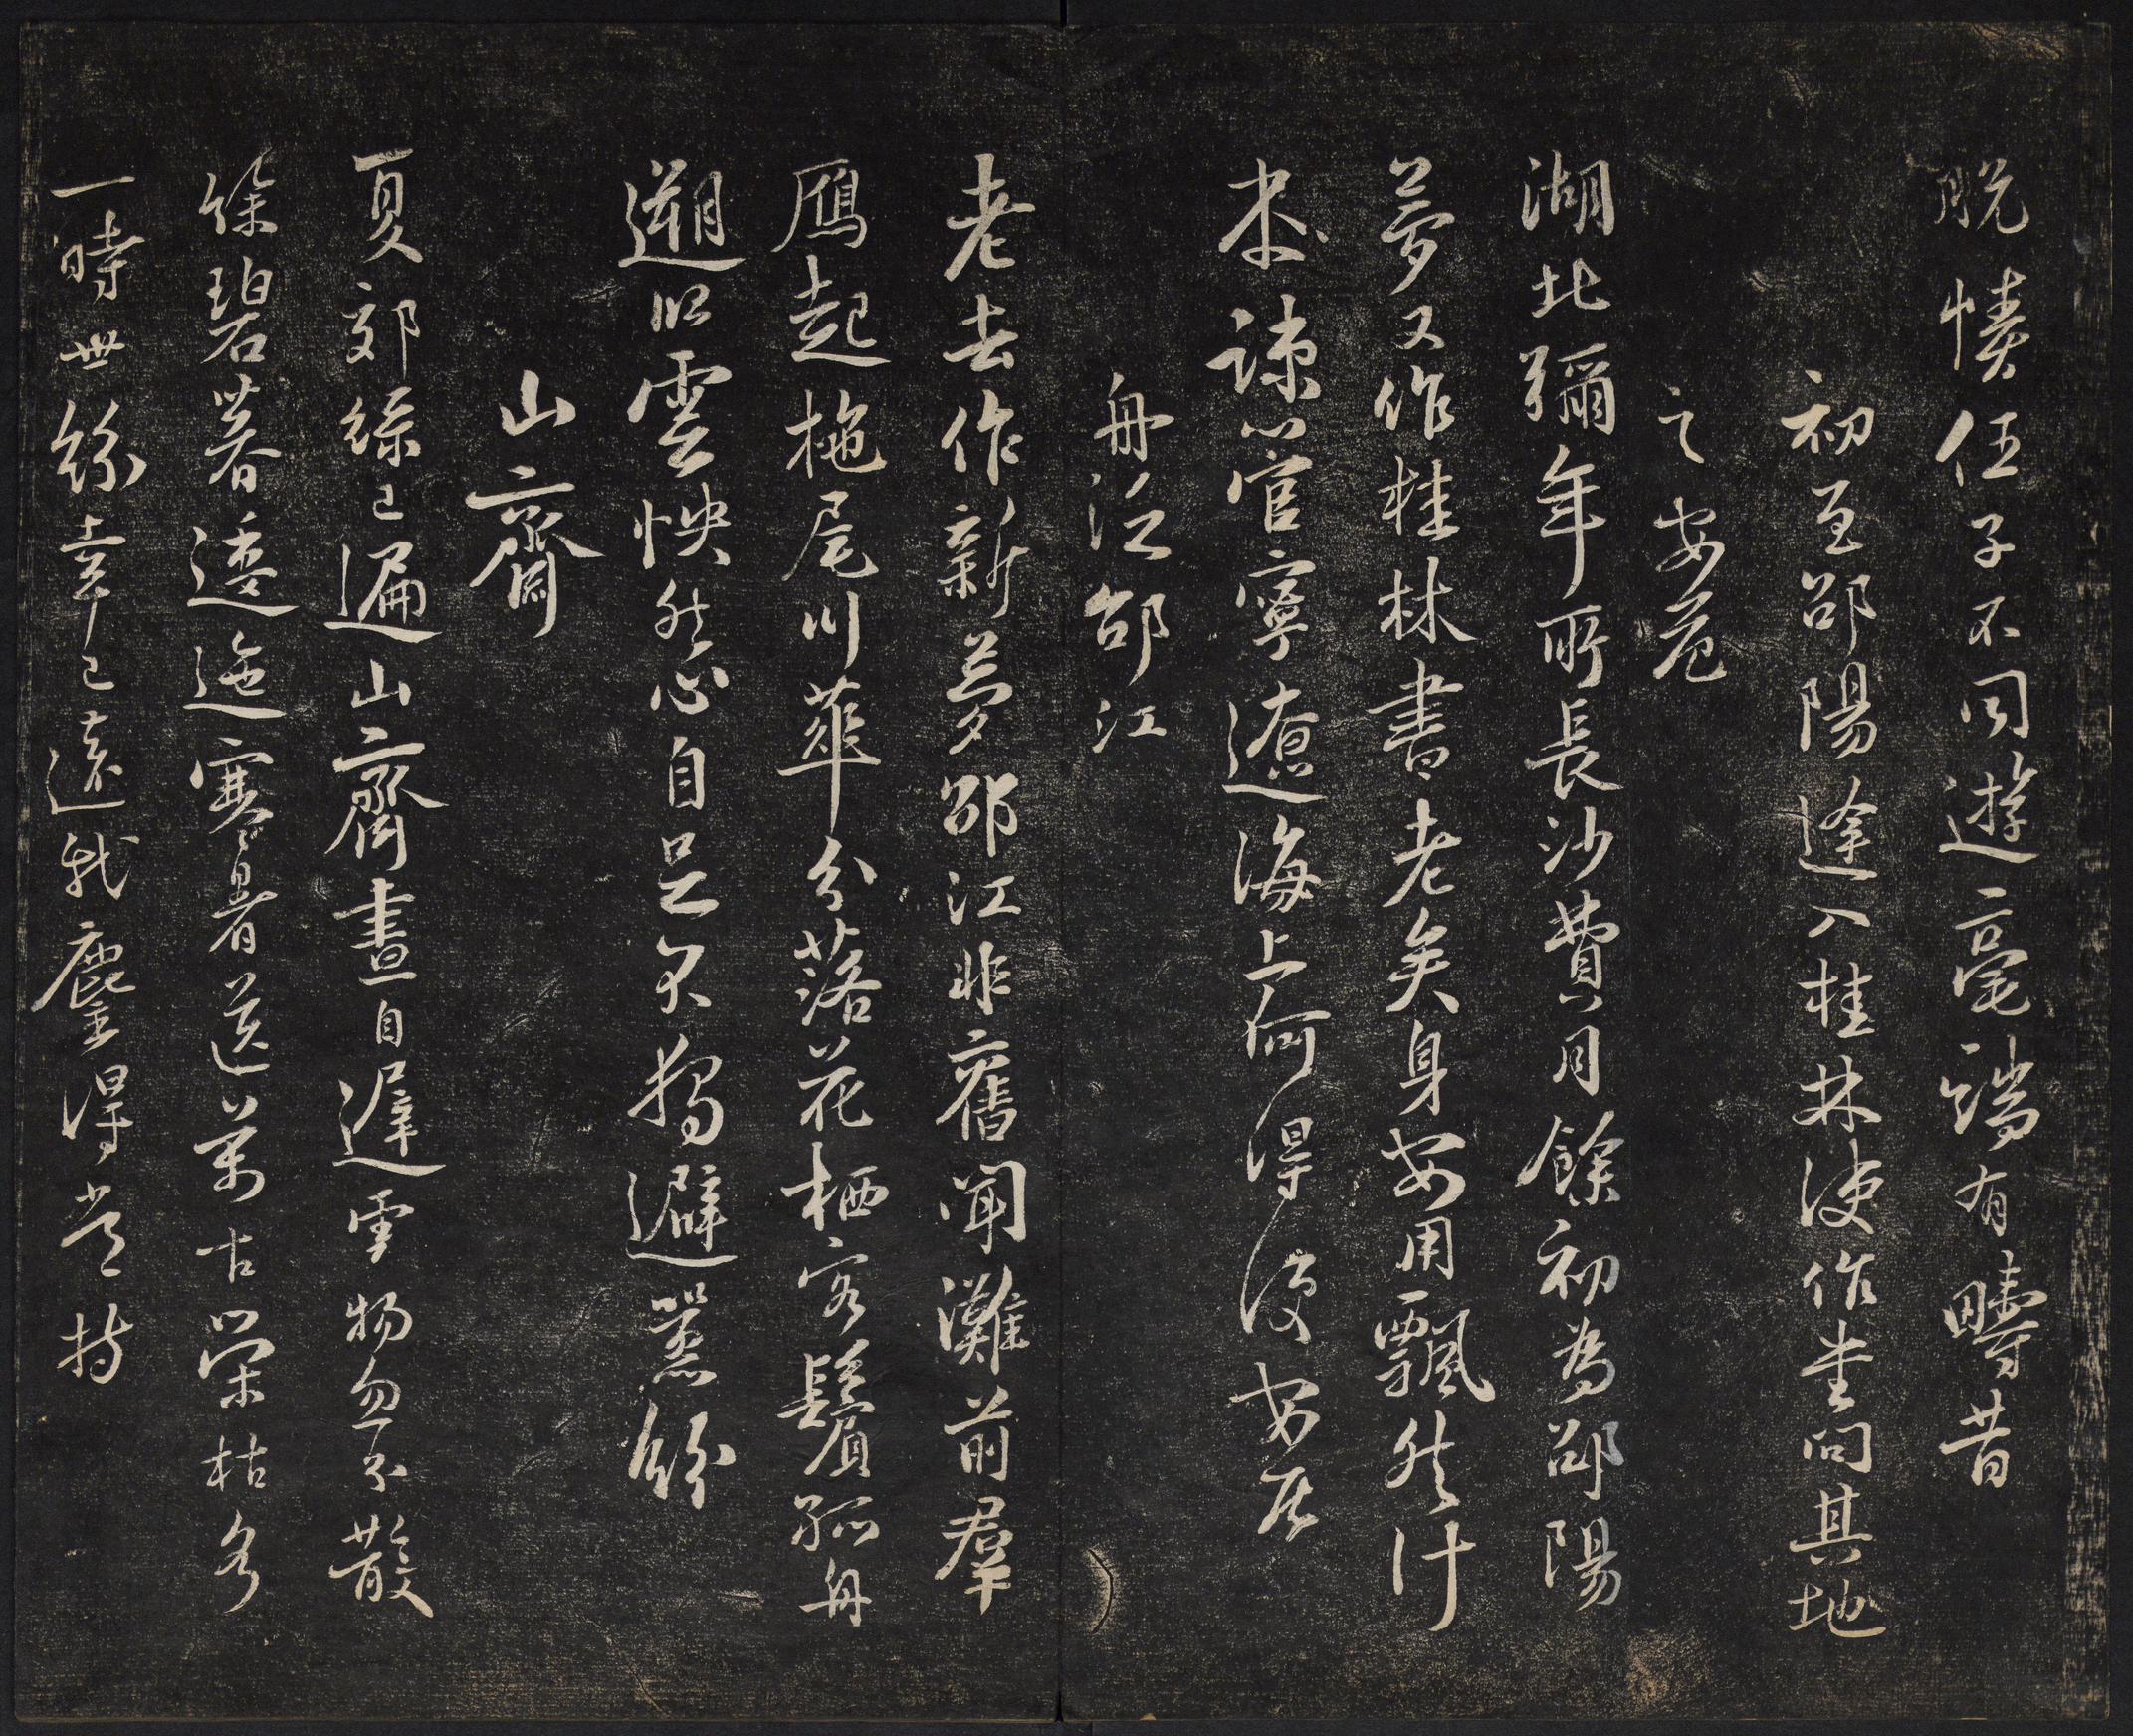 脫幘任子不同遊毫端有疇昔
初至邵陽逢入桂林使作書問其地
之安危
湖北彌年所長沙費月餘初為邵陽
夢又作桂林書老矣身安用飄然計
本疎管寧遼海上何得復安居
舟泛邵江
老去作新夢邵江非舊聞灘前羣
雁起柂尾川華分落花栖客鬢孤舟
遡歸雲快然心自足不獨避囂紛
山齋
夏郊綠已遍山齋晝自遲雲物忽分散
餘碧暮逶迤寒暑送萬古榮枯各
一時世紛幸已遠我麈得常持